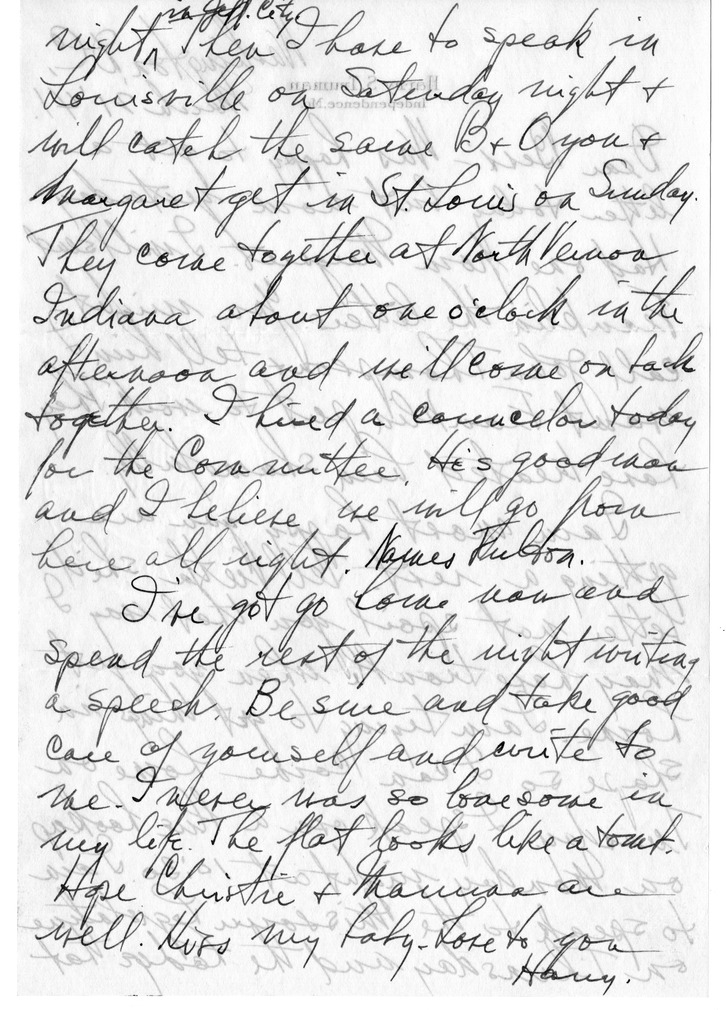 in Jeff. City
night ^ Then I have to speak in
Louisville on Saturday night +
will catch the same B + O you +
Margaret get in St. Louis on Sunday.
They come together at North Vernon
Indiana about one o'clock in the
afternoon and we'll come on back
together. I hired a councelor today
for the Committee. He's good man
and I believe we will go from
here all right. Names Fulton.
I've got go home now and
spend the rest of the night writing
a speech. Be sure and take good
care of yourself and write to
me. I never was so lonesome in
my life. The flat looks like a tomb.
Hope Christie + Mamma are
well. Kiss my baby. Love to you
Harry.